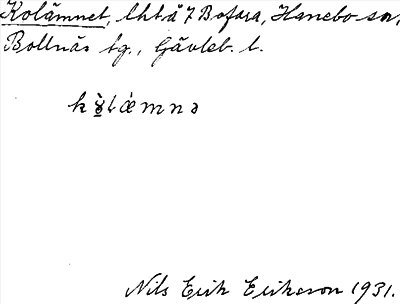 Kolämnet, lht å 7 Bofara, Hanebo sn,
Bollnäs tg., Gävleb. l.
Nils Erik Erikson 1931.